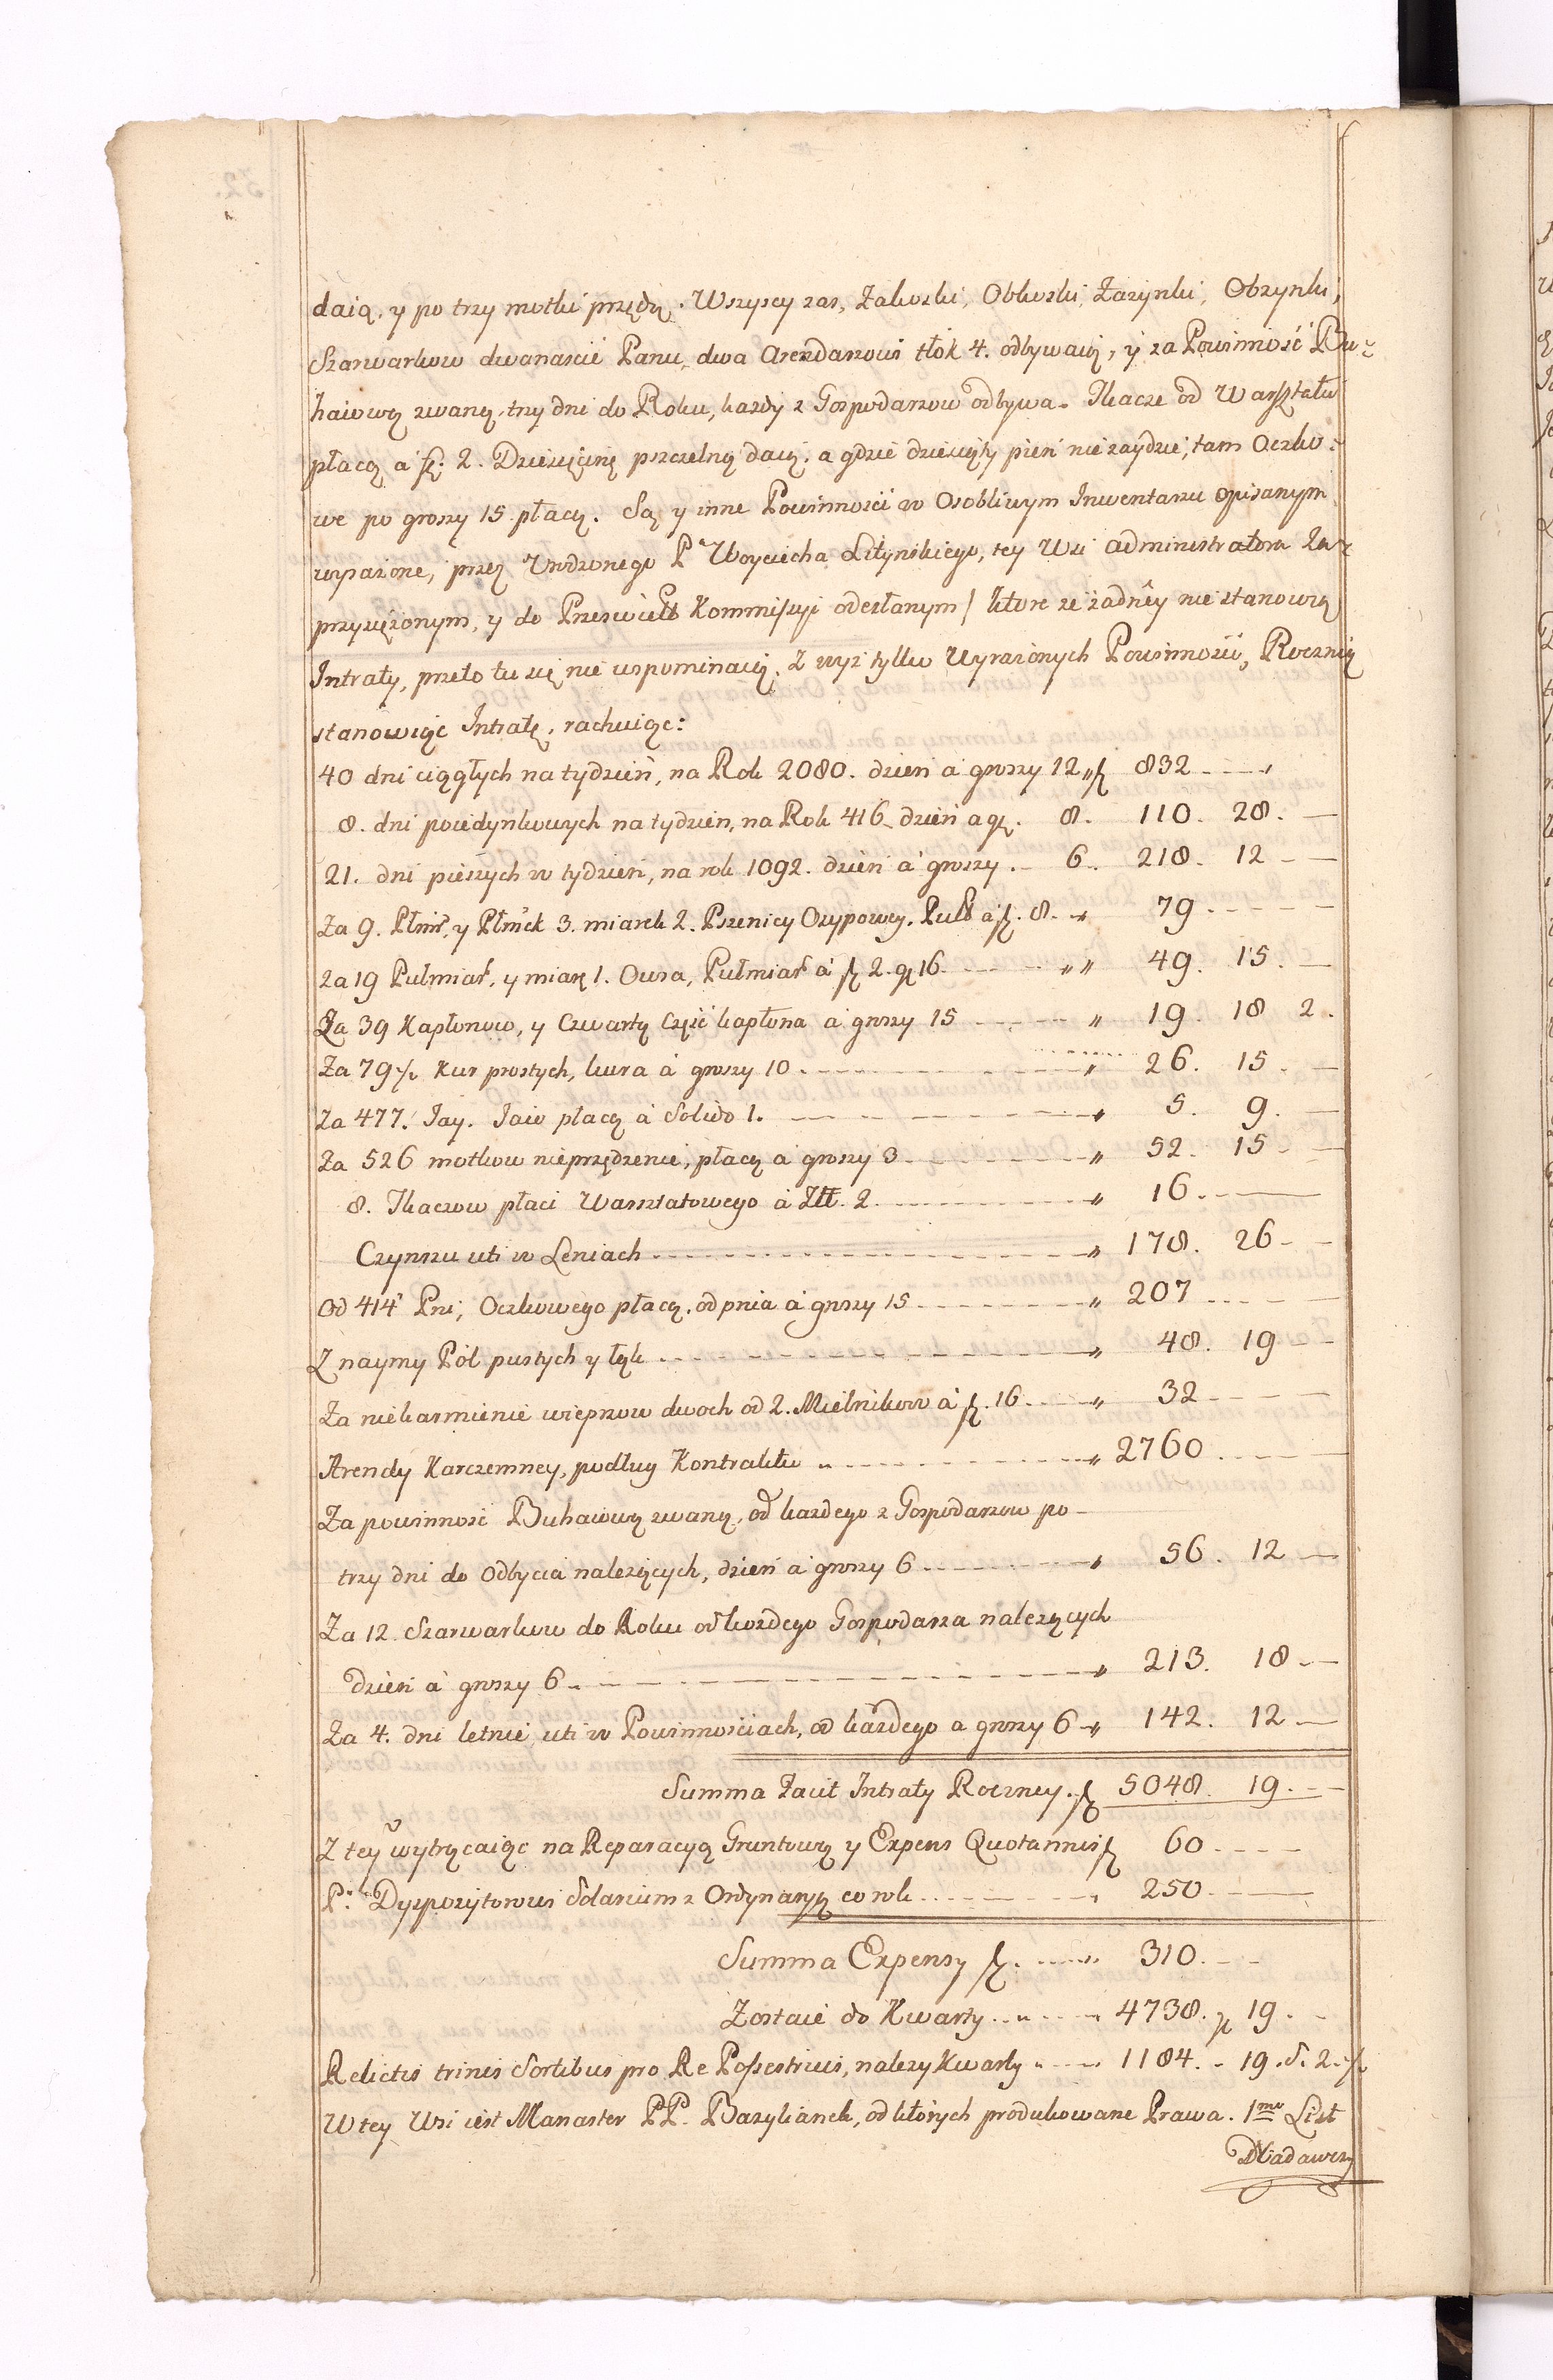 daią, y po trzy motki przędą. Wszyscy zas, Zakoski, Obkoski, Zazynki, Obzynki,
Szarwarkow dwanascie Panu, dwa Arendarzowi tłok 4. odbywaią, y za Powinność Bu-
haiową zwaną, trzy dni do Roku, kazdy z Gospodarzow odbywa. Tkacze od Warsztatu
płacą a f: 2. Dziesięcinę pszczelną daią, a gdzie dziesiąty pień nie zaydzie, tam Oczko-
we po groszy 15 płacą. Są y inne Powinności w Osobliwym Inwentarzu opisanym
wyrażone, przez Urodzonego P. Woyciecha Lityńskiego, tey Wsi administratora Za-
przysiężonym, y do Przeświett Kommissyi odesłanym / ktore ze żadnéy nie stanowią
Intraty, przeto tu się nie wspominaią. Z wyż tylko Wyrażonych Powinności, Roczną
stanowiąc Intratę, rachuiąc:
40 dni ciągłych na tydzień, na Rok 2080. dzień a groszy 12 „ f 832 - - -
8. dni poiedynkowych na tydzien, na Rok 416 dzień a gr. 8. 110. 28. -
21. dni pieszych w tydzień, na rok 1092. dzień á groszy. - 6. 218. 12 - -
Za 9. Płmiř, y Płmčk 3. miarek 2. Pszenicy Osypowey. Puł a f. 8. - „ 79 - - - -
za 19 Pułmiař, y miarę 1. Owsa, Pułmiař á f 2. gr 16 - - - „ „ 49. 15. -
Za 39 Kapłonow, y Czwartą Częśc kapłona a groszy 15 - - - „ 19. 18 2.
Za 79 ½ Kur prostych, kura á groszy 10 - - - „ 26. 15. -
Za 477. Jay. Jaio płacą á Solido 1. - - - „ 5. 9. -
Za 526 motkow nieprzędzenie, płacą a groszy 3 - - - „ 52. 15 - -
8. Tkaczow płaci Warsztatowego á Złł. 2. - - - „ 16 - - -
Czynszu uti w Leniach - - - „ 178. 26 - -
Od 414 Pni, Oczkowego płacą, od pnia á groszy 15 - - - „ 207 - - -
Z naymy Pól pustych y łąk - - - „ 48. 19 -
Za niekarmienie wieprzow dwoch od 2. Mielnikow á f. 16 - - - „ 32 - - -
Arendy Karczemney, podług Kontraktu „ - - - „ 2760 - - -
Za powinnosć Buhaiową zwaną, od kazdego z Gospodarzow po-
trzy dni do odbycia należących, dzień á groszy 6 - - - „ 56. 12 -
Za 12 Szarwarkow do Roku od kozdego Gospodarza należących
dzień á groszy 6 - - - „ 213. 18 - -
Za 4. dni letnie, uti w Powinnościach, od każdego a groszy 6 - „ 142. 12 -
Summa Facit Intraty Roczney. f 5048. 19. - -
Z tey wytrącaiąc na Reparacyą Gruntową y Expens Quotannis f 60 - - - -
P. Dyspozytorowi Solarium z Ordynaryą co rok - - - 250 - - -
Summa Expensy f. - - - „ 310. - -
Zostaie do Kwarty - - - 4738. gr 19. -
Relictis trinis Sortibus pro Re Possestrius, nalezy Kwarty - - - 1184. - 19. S. 2. ½
W tey Wsi iest Manaster PP. Bazylianek, od których produkowane Prawa. 1mo List
Nadawczy